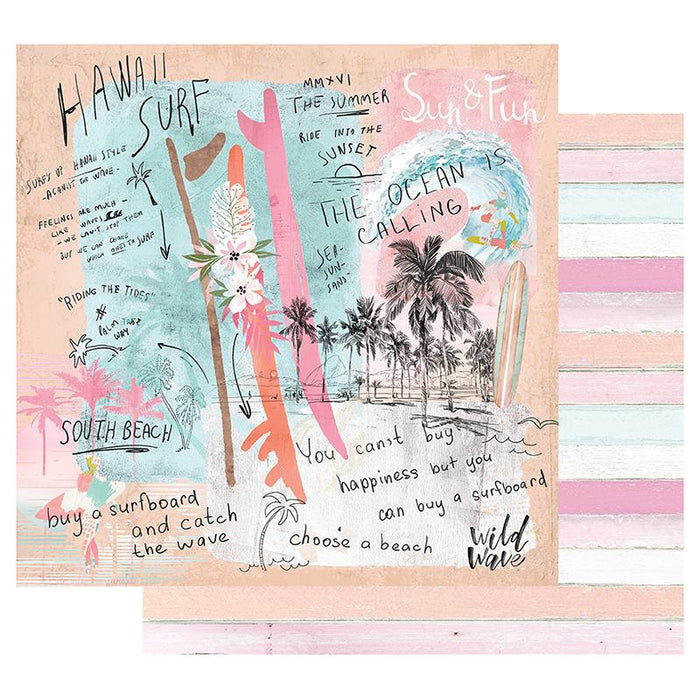 HAWAII
SURF
SURF'S UP HAWAII STYLE
- AGAINST THE WAVE -
FEELINGS ARE MUCH -
LIKE WAVES
- WE CAN'T STOP THEM
BUT WE CAN CHOOSE
WHICH ONES TO SURF
"RIDING THE TIDES"
PALM TREE
WAY
SOUTH BEACH
buy a surfboard
and catch
the wave
MMXVI
THE SUMMER
RIDE INTO THE
SUNSET
Sun & Fun
THE OCEAN IS
CALLING
SEA-
SUN-
SAND
You can't buy
happiness but you
can buy a surfboard
choose a beach
wild
wave